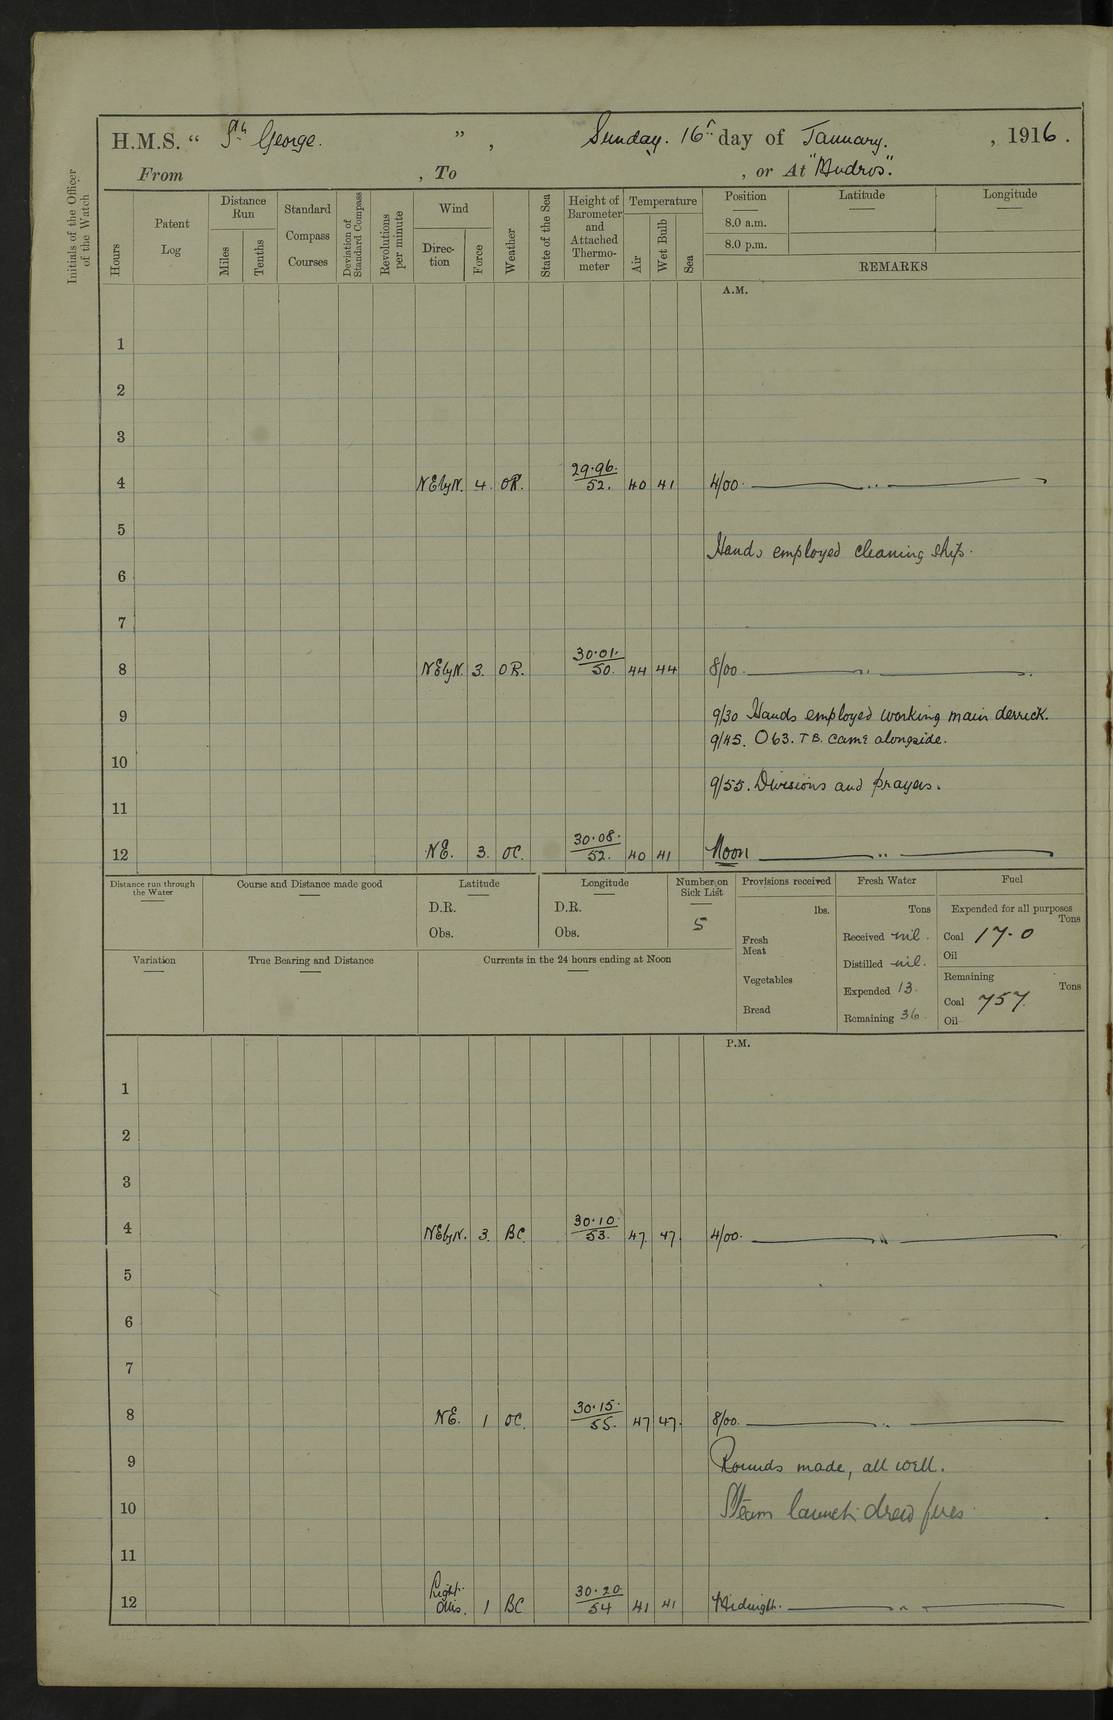 H.M.S. “ St. George. ”, Sunday. 16th day of January. , 1916.
From , To , or At "Mudros".
Initials of the Officer of the Watch
Hours
Patent Log
Distance Run
Miles
Tenths
Standard Compass Courses
Deviation of Standard Compass
Revolutions per minute
Wind
Direction
Force
Weather
State of the Sea
Height of Barometer and Attached Thermometer
Temperature
Air
Wet Bulb
Sea
Position
8.0 a.m.
8.0 p.m.
Latitude
Longitude
REMARKS
A.M.
1
2
3
4 NEbyN. 4. OR. 29.96. 52. 40 41 4/00. „
5
Hands employed cleaning ship.
6
7
8 NEbyN. 3. OR. 30.01. 50. 44 44 8/00. „
9 9/30 Hands employed working main derrick.
9/45. 063. T.B. came alongside.
10
9/55. Divisions and prayers.
11
12 NE. 3. OC. 30.08. 52. 40 41 Noon „
Distance run through the Water
Course and Distance made good
Latitude
D.R.
Obs.
Longitude
D.R.
Obs.
Number on Sick List
5
Provisions received
lbs.
Fresh Meat
Vegetables
Bread
Fresh Water
Tons
Received nil.
Distilled nil.
Expended 13.
Remaining 36.
Fuel
Expended for all purposes
Tons
Coal 17.0
Oil
Remaining
Tons
Coal 757.
Oil
Variation
True Bearing and Distance
Currents in the 24 hours ending at Noon
P.M.
1
2
3
4 NEbyN. 3. BC. 30.10. 53. 47. 47. 4/00. „
5
6
7
8 NE. 1 OC. 30.15. 55. 47 47. 8/00. „
9 Rounds made, all well.
10 Steam launch drew fires.
11
12 Light Airs. 1 BC 30.20. 54 41 41 Midnight. „